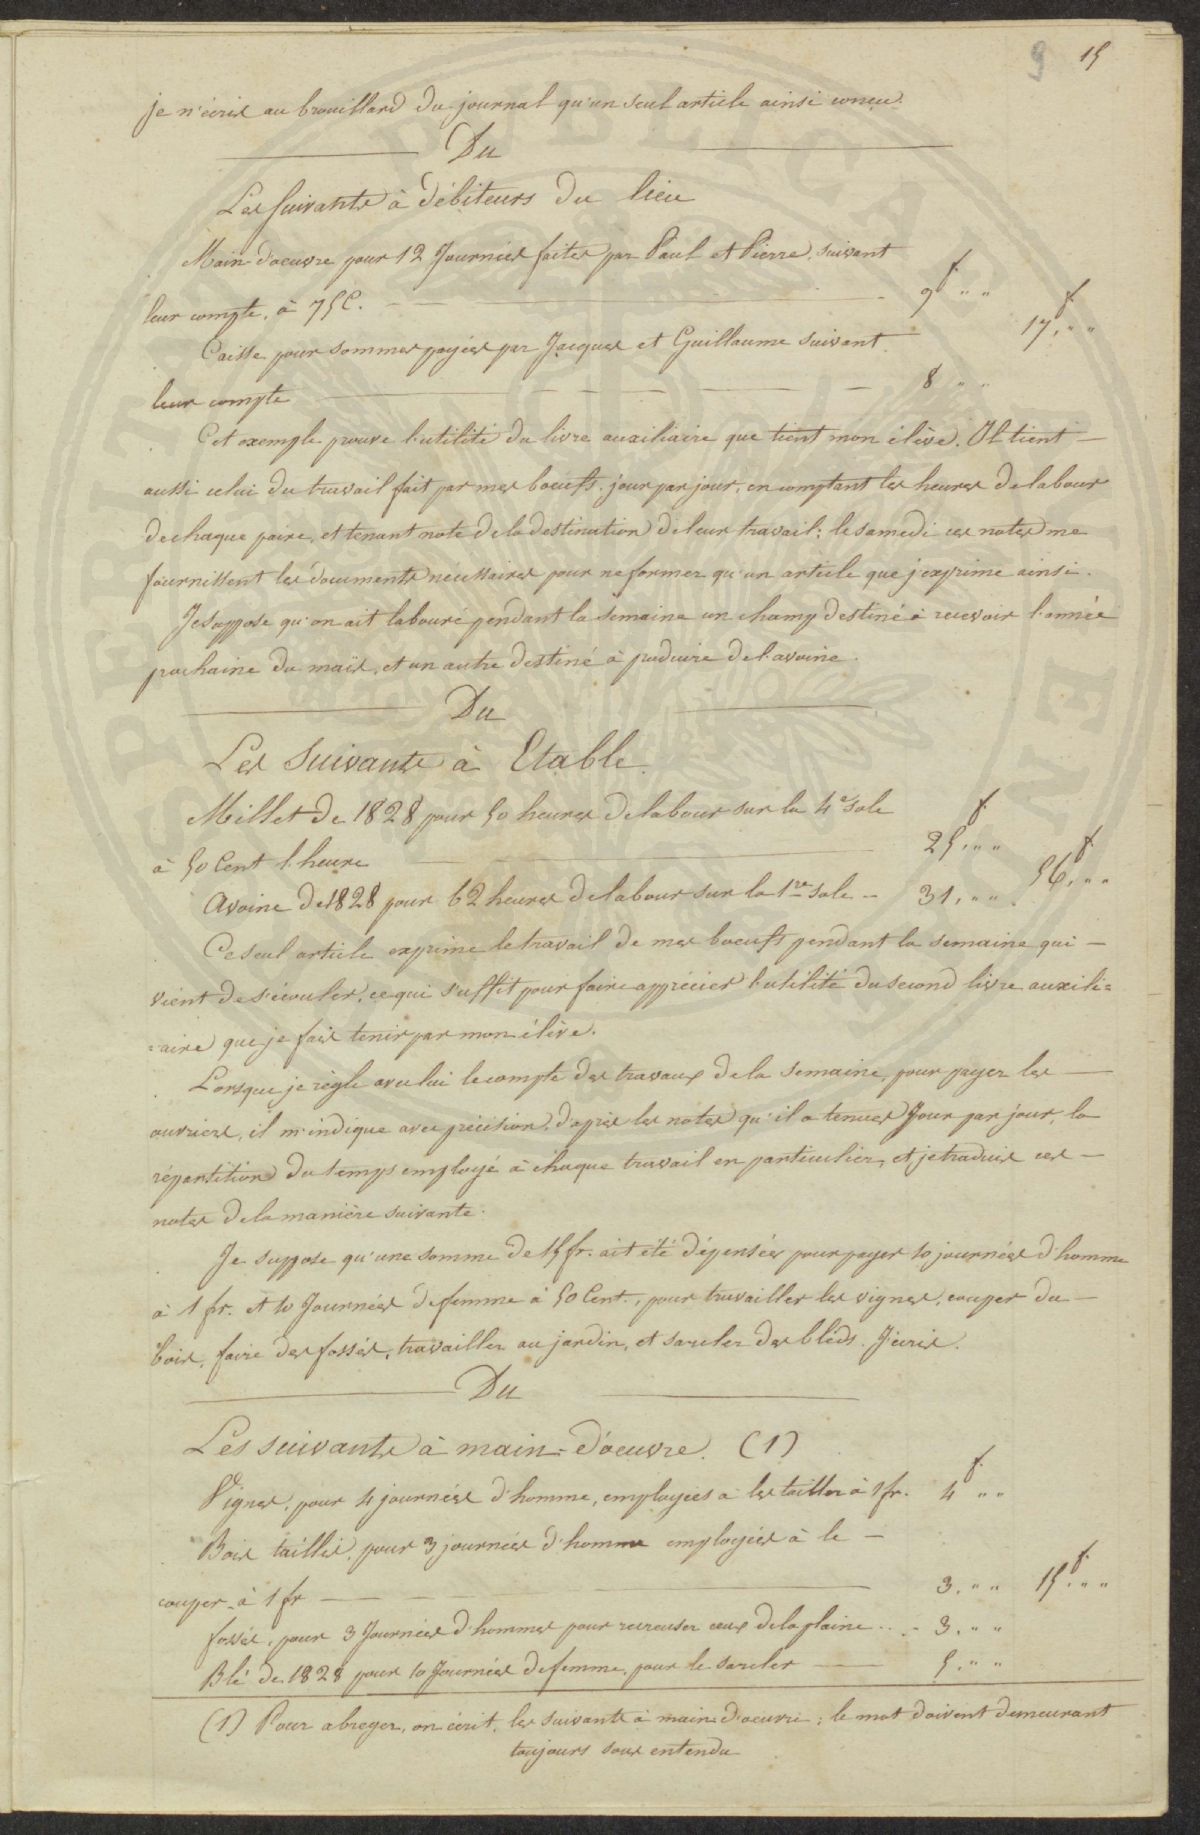 9 15
je n'écris au brouillard du journal qu'un seul article ainsi conçu.
Du
Les suivants à débiteurs du lieu
Main-d'oeuvre pour 12 Journées faites par Paul et Pierre, suivant
leur compte, à 75 C. 9 f. " "
17 f. " "
Caisse pour sommes payées par Jacques et Guillaume suivant
leur compte 8 " "
Cet exemple prouve l'utilité du livre auxiliaire que tient mon élève. Il tient
aussi celui du travail fait par mes boeufs, jour par jour, en comptant les heures de labour
de chaque paire, et tenant note de la destination de leur travail: le samedi ces notes me
fournissent les documents nécessaires pour ne former qu'un article que j'exprime ainsi.
Je suppose qu'on ait labouré pendant la semaine un champ destiné à recevoir l'année
prochaine du maïs, et un autre destiné à produire de l'avoine.
Du
Les Suivants à Etable.
Millet de 1828 pour 50 heures de labour sur la 4e sole
à 50 Cent l'heure 25 f. " "
56 f. " "
Avoine de 1828 pour 62 heures de labour sur la 1re sole 31, " "
Ce seul article exprime le travail de mes boeufs pendant la semaine qui
vient de s'écouler, ce qui suffit pour faire apprécier l'utilité du second livre auxili=
=aire que je fais tenir par mon élève.
Lorsque je règle avec lui le compte des travaux de la semaine, pour payer les
ouvriers, il m'indique avec précision, d'après les notes qu'il a tenues Jour par jour, la
répartition du temps employé à chaque travail en particulier, et je traduis ces
notes de la manière suivante.
Je suppose qu'une somme de 15 fr. ait été dépensée pour payer 10 journées d'homme
à 1 fr. et 10 Journées de femme à 50 Cent., pour travailler les vignes, couper du
bois, faire des fossés, travailler au jardin, et sarcler des blés. J'écris.
Du
Les suivants à main-d'oeuvre. (1)
Vignes, pour 4 journées d'homme, employées à les tailler à 1 fr. 4 f. " "
Bois taillis, pour 3 journées d'homme employées à le
couper à 1 fr 3, " " 15 f. " "
fossés, pour 3 Journées d'hommes pour recreuser ceux de la plaine 3, " "
Blé de 1828 pour 10 Journées de femme, pour le sarcler 5, " "
(1) Pour abreger, on écrit, les suivants à main d'oeuvre; le mot doivent demeurant
toujours sous entendu